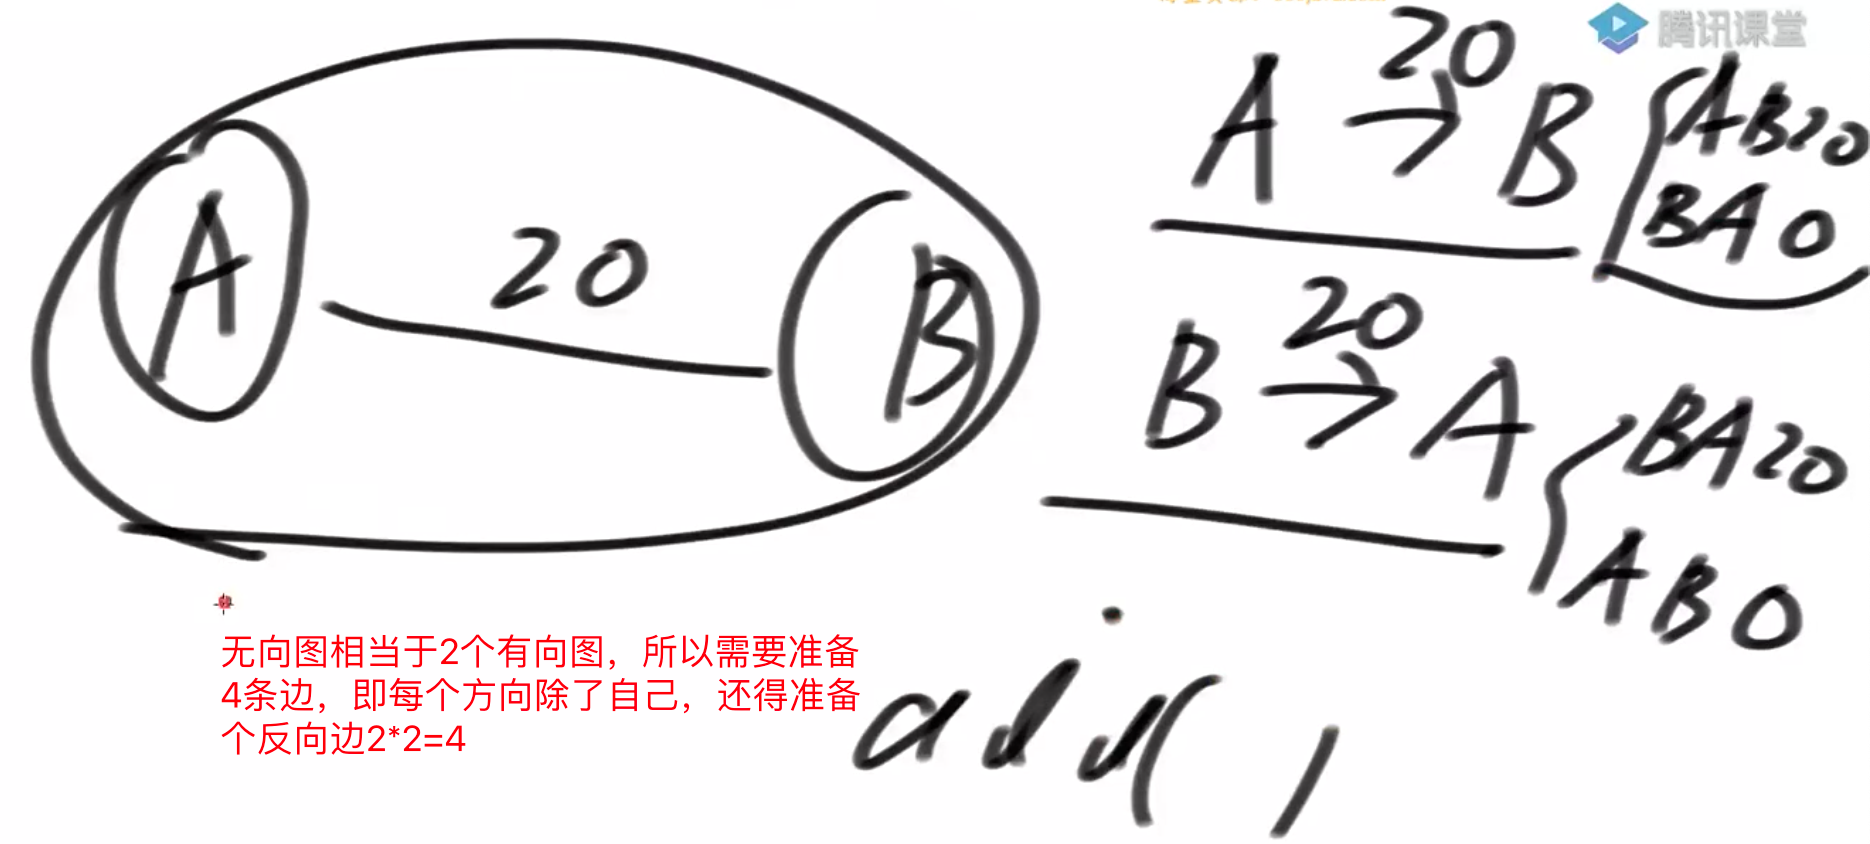 腾讯课堂
20
A → B
AB20
BA0
A
20
B
20
B → A
BA20
AB0
无向图相当于2个有向图，所以需要准备
4条边，即每个方向除了自己，还得准备
个反向边2*2=4
add( )